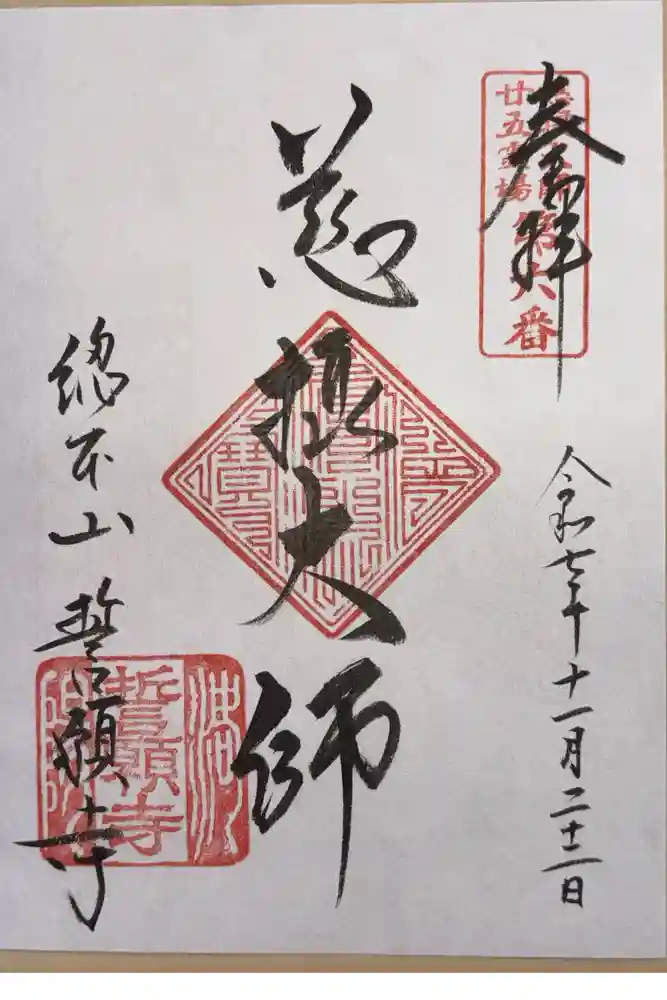 奉拝
慈摂大師
廿五霊場
第六番
令和七年十一月二十二日
慈摂大師
總本山 誓願寺
誓願寺